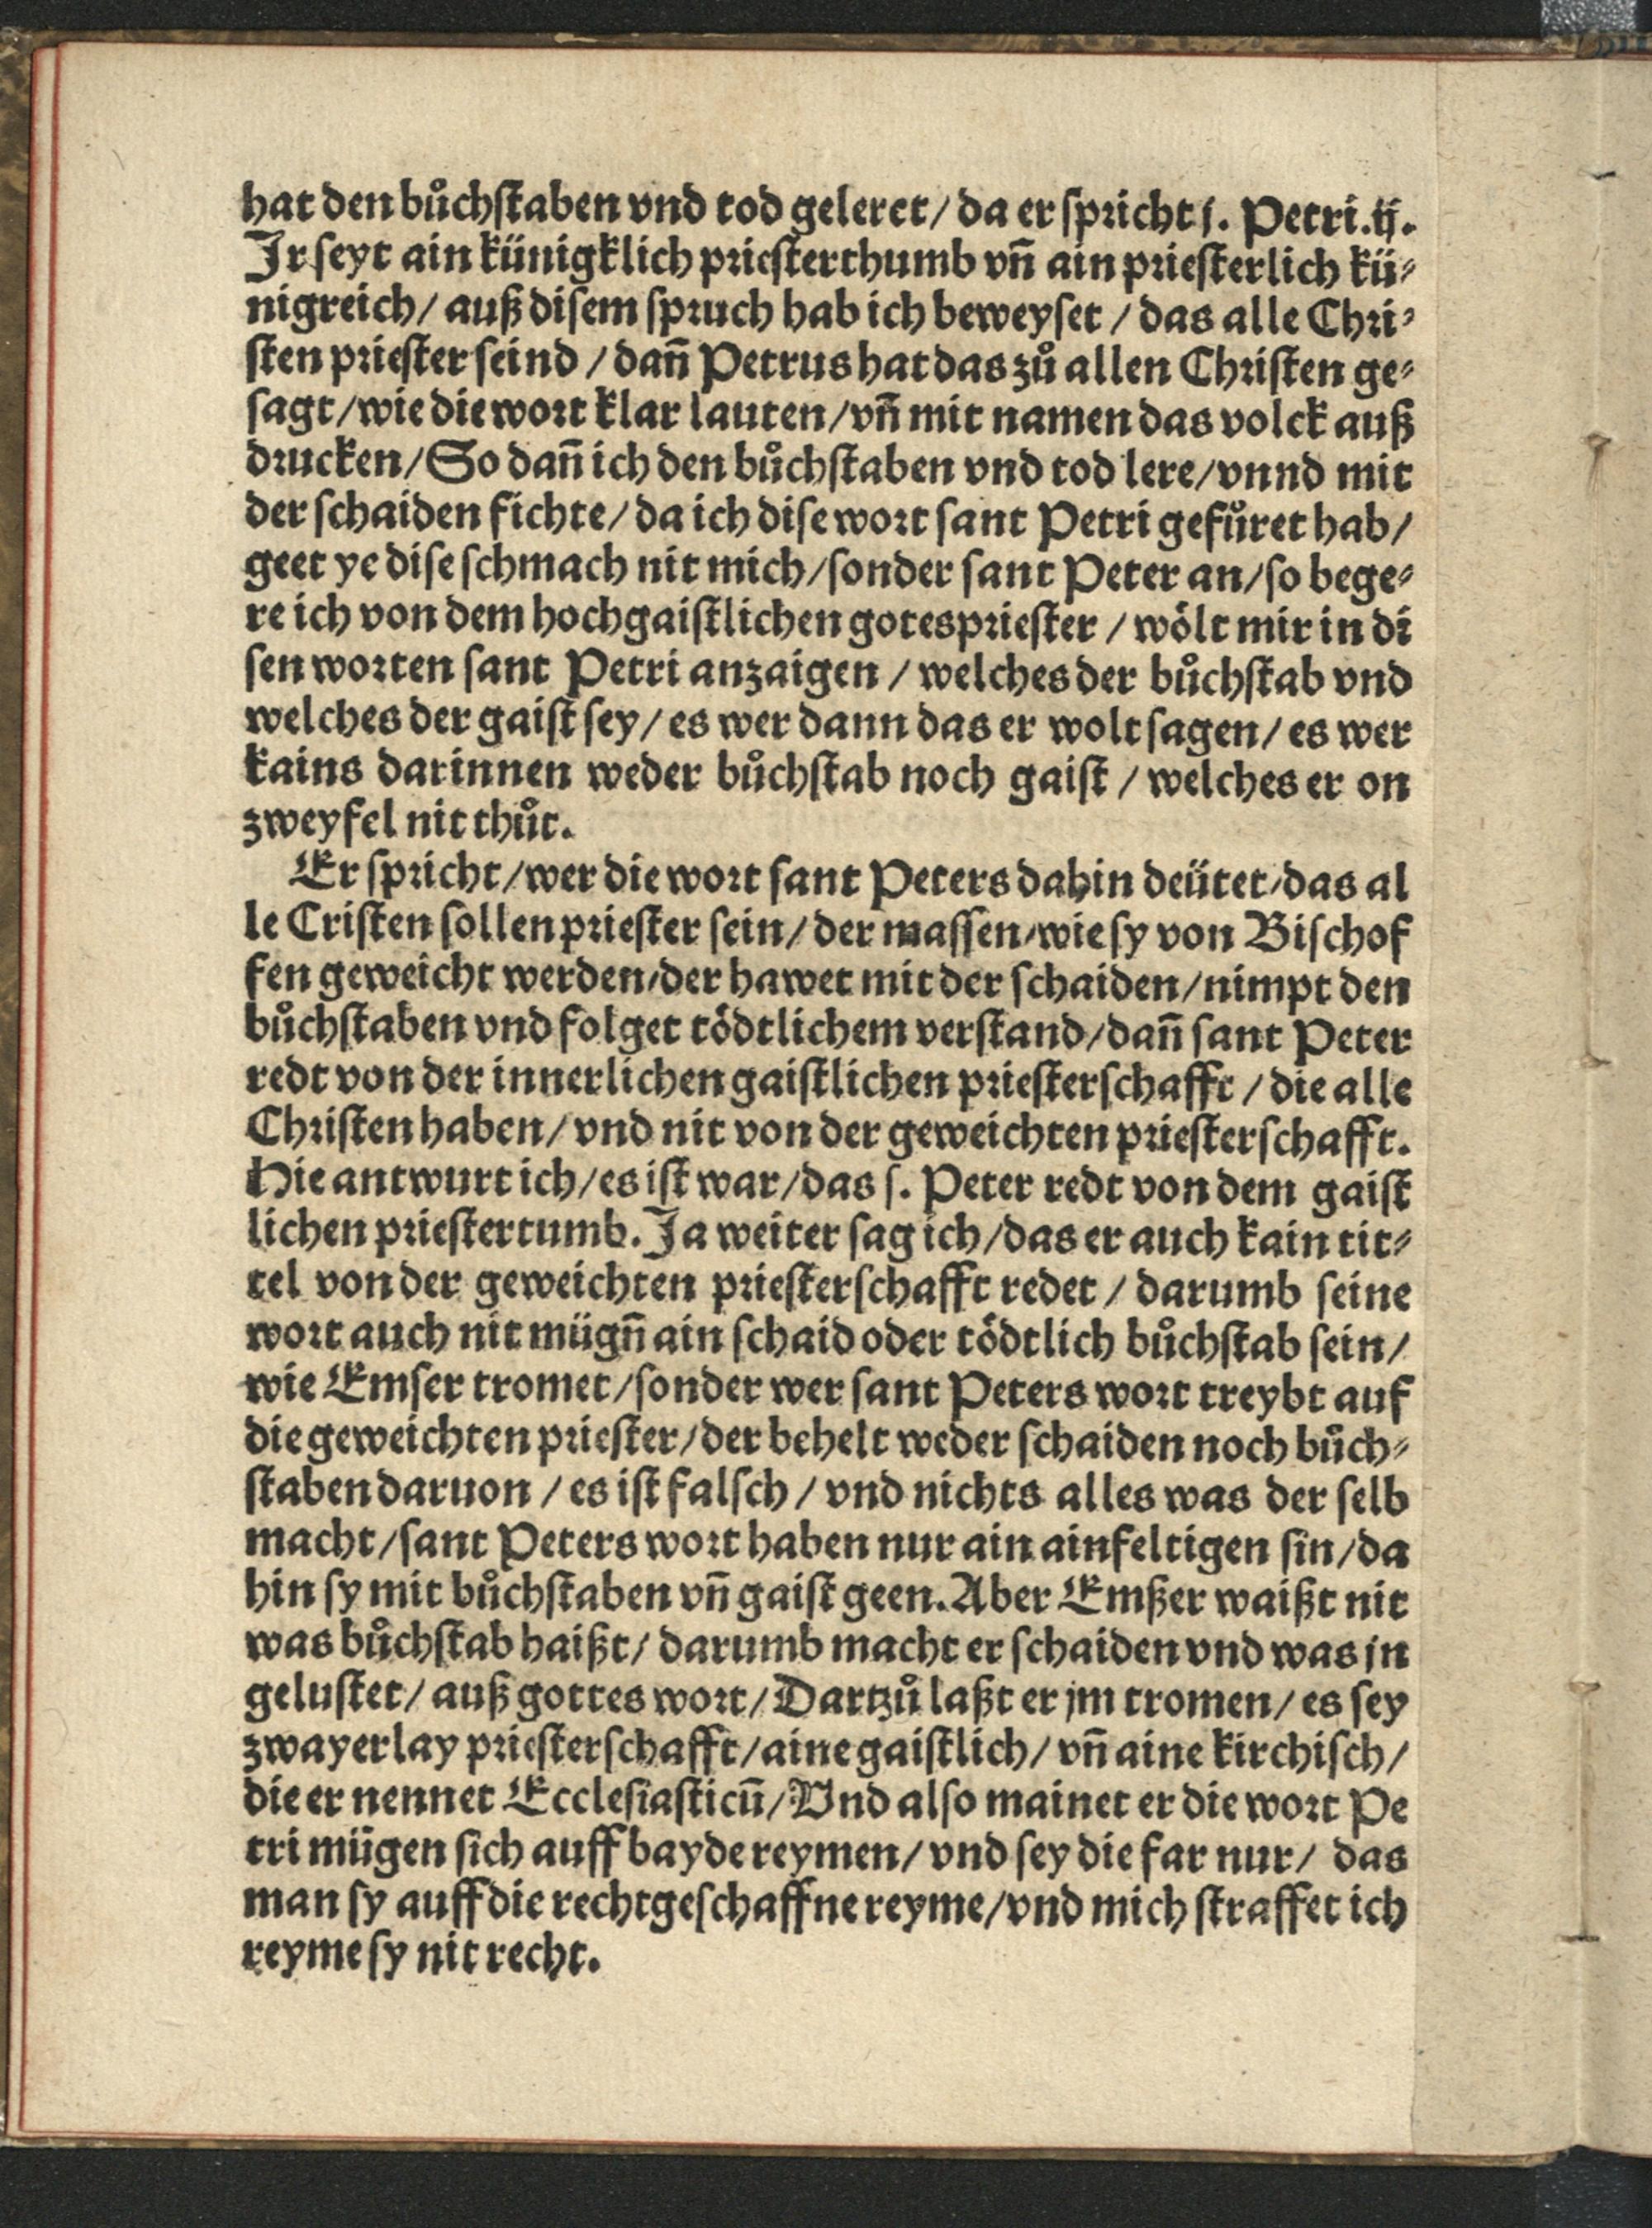 hat den bůchſtaben vnd tod geleret/ da er ſpricht j. Petri.ij.
Jr ſeyt ain künigklich prieſterthumb vñ ain prieſterlich kü⸗
nigreich/ auß diſem ſpruch hab ich beweyſet / das alle Chri⸗
ſten prieſter ſeind / dañ Petrus hat das zů allen Chriſten ge⸗
ſagt/wie die wort klar lauten/vñ mit namen das volck auß
drucken/So dañ ich den bůchſtaben vnd tod lere/vnnd mit
der ſchaiden fichte/ da ich diſe wort ſant Petri gefůret hab/
geet ye diſe ſchmach nit mich/ſonder ſant Peter an/ſo bege⸗
re ich von dem hochgaiſtlichen gotesprieſter / wölt mir in di
ſen worten ſant Petri anzaigen / welches der bůchſtab vnd
welches der gaiſt ſey/ es wer dann das er wolt ſagen/ es wer
kains darinnen weder bůchſtab noch gaiſt / welches er on
zweyfel nit thůt.
Er ſpricht/wer die wort ſant Peters dahin deütet/das al
le Criſten ſollen prieſter ſein/ der maſſen/wie ſy von Biſchof
fen geweicht werden/der hawet mit der ſchaiden/nimpt den
bůchſtaben vnd folget tödtlichem verſtand/dañ ſant Peter
redt von der innerlichen gaiſtlichen prieſterſchafft / die alle
Chriſten haben/ vnd nit von der geweichten prieſterſchafft.
Hie antwurt ich/es iſt war/das ſ. Peter redt von dem gaiſt
lichen prieſtertumb. Ja weiter ſag ich/das er auch kain tit⸗
tel von der geweichten prieſterſchafft redet / darumb ſeine
wort auch nit mügñ ain ſchaid oder tödtlich bůchſtab ſein/
wie Emſer tromet/ſonder wer ſant Peters wort treybt auf
die geweichten prieſter/der behelt weder ſchaiden noch bůch⸗
ſtaben daruon / es iſt falſch / vnd nichts alles was der ſelb
macht/ſant Peters wort haben nur ain ainfeltigen ſin/da
hin ſy mit bůchſtaben vñ gaiſt geen. Aber Emßer waißt nit
was bůchſtab haißt/ darumb macht er ſchaiden vnd was jn
geluſtet/ auß gottes wort/ Dartzů laßt er jm tromen/ es ſey
zwayerlay prieſterſchafft/aine gaiſtlich/ vñ aine kirchiſch/
die er nennet Eccleſiaſticũ/Vnd alſo mainet er die wort Pe
tri mügen ſich auff bayde reymen/ vnd ſey die far nur/ das
man ſy auff die rechtgeſchaffne reyme/vnd mich ſtraffet ich
reyme ſy nit recht.